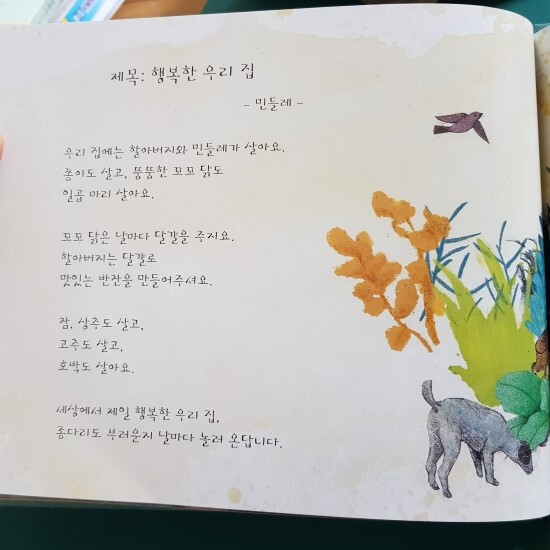 제목: 행복한 우리 집
- 민들레 -
우리 집에는 할아버지와 민들레가 살아요.
종이도 살고, 뚱뚱한 꼬꼬 닭도
일곱 마리 살아요.
꼬꼬 닭은 날마다 달걀을 주지요.
할아버지는 달걀로
맛있는 반찬을 만들어주셔요.
참, 상추도 살고,
고추도 살고,
호박도 살아요.
세상에서 제일 행복한 우리 집,
종다리도 부러운지 날마다 놀러 온답니다.